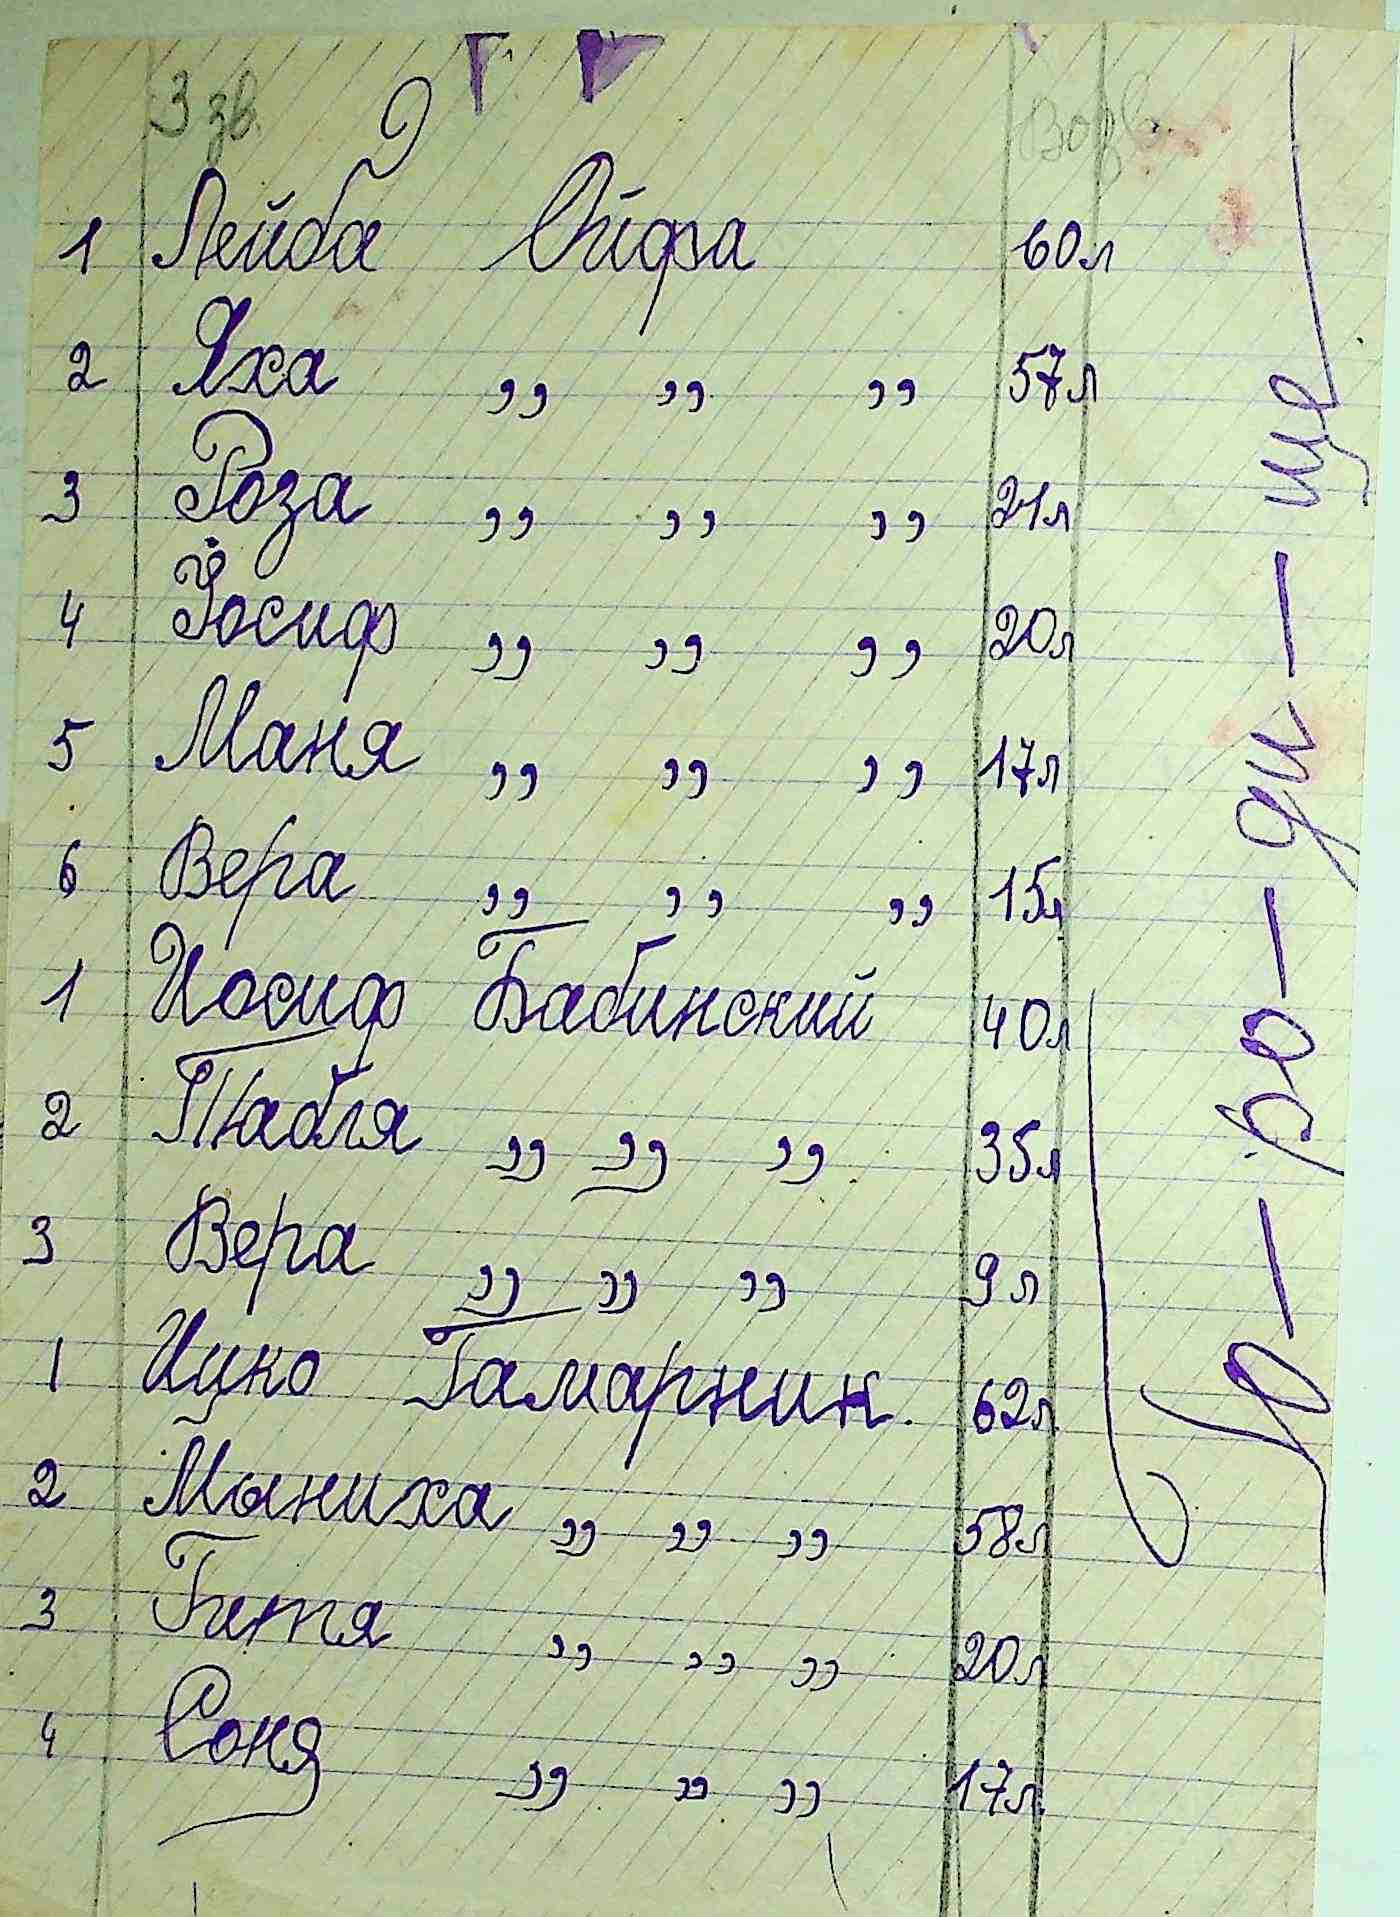 3 зв. 9 Возв.
1 Лейба Ойфа 60л
2 Яха ,, ,, ,, 57л
3 Роза ,, ,, ,, 21л
4 Йосиф ,, ,, ,, 20л
5 Маня ,, ,, ,, 17л
6 Вера ,, ,, ,, 15л
1 Иосиф Бабинский 40л
2 ,, ,, ,, 35л
3 Вера ,, ,, ,, 9л
1 Ицко Гамарник. 62л
2 Маниха ,, ,, ,, 58л
3 Гитя ,, ,, ,, 20л
4 Соня ,, ,, ,, 17л.
Го-ро-ди-ще